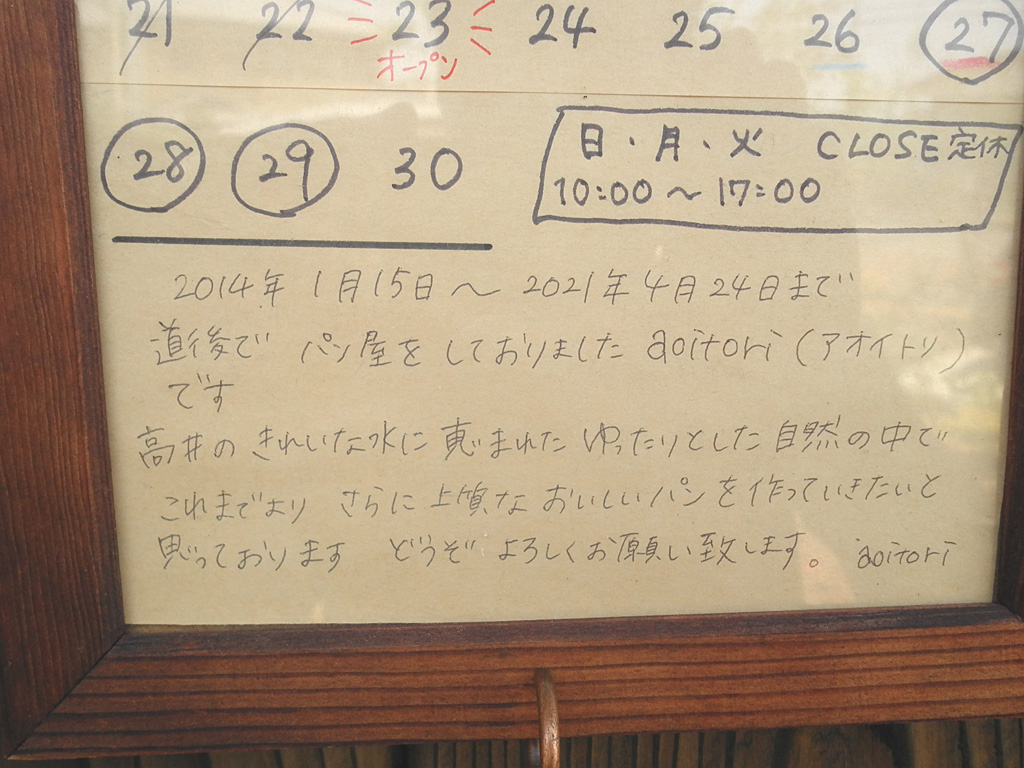 21 22 23 24 25 26 27
オープン
28 29 30
日・月・火 CLOSE 定休
10:00〜17:00
2014年 1月15日〜 2021年4月24日まで
道後で パン屋を しておりました aoitori(アオイトリ)
です
高井の きれいな水に 恵まれた ゆったりとした 自然の中で
これまでより さらに上質な おいしいパンを作っていきたいと
思っております どうぞ よろしくお願い致します。 aoitori